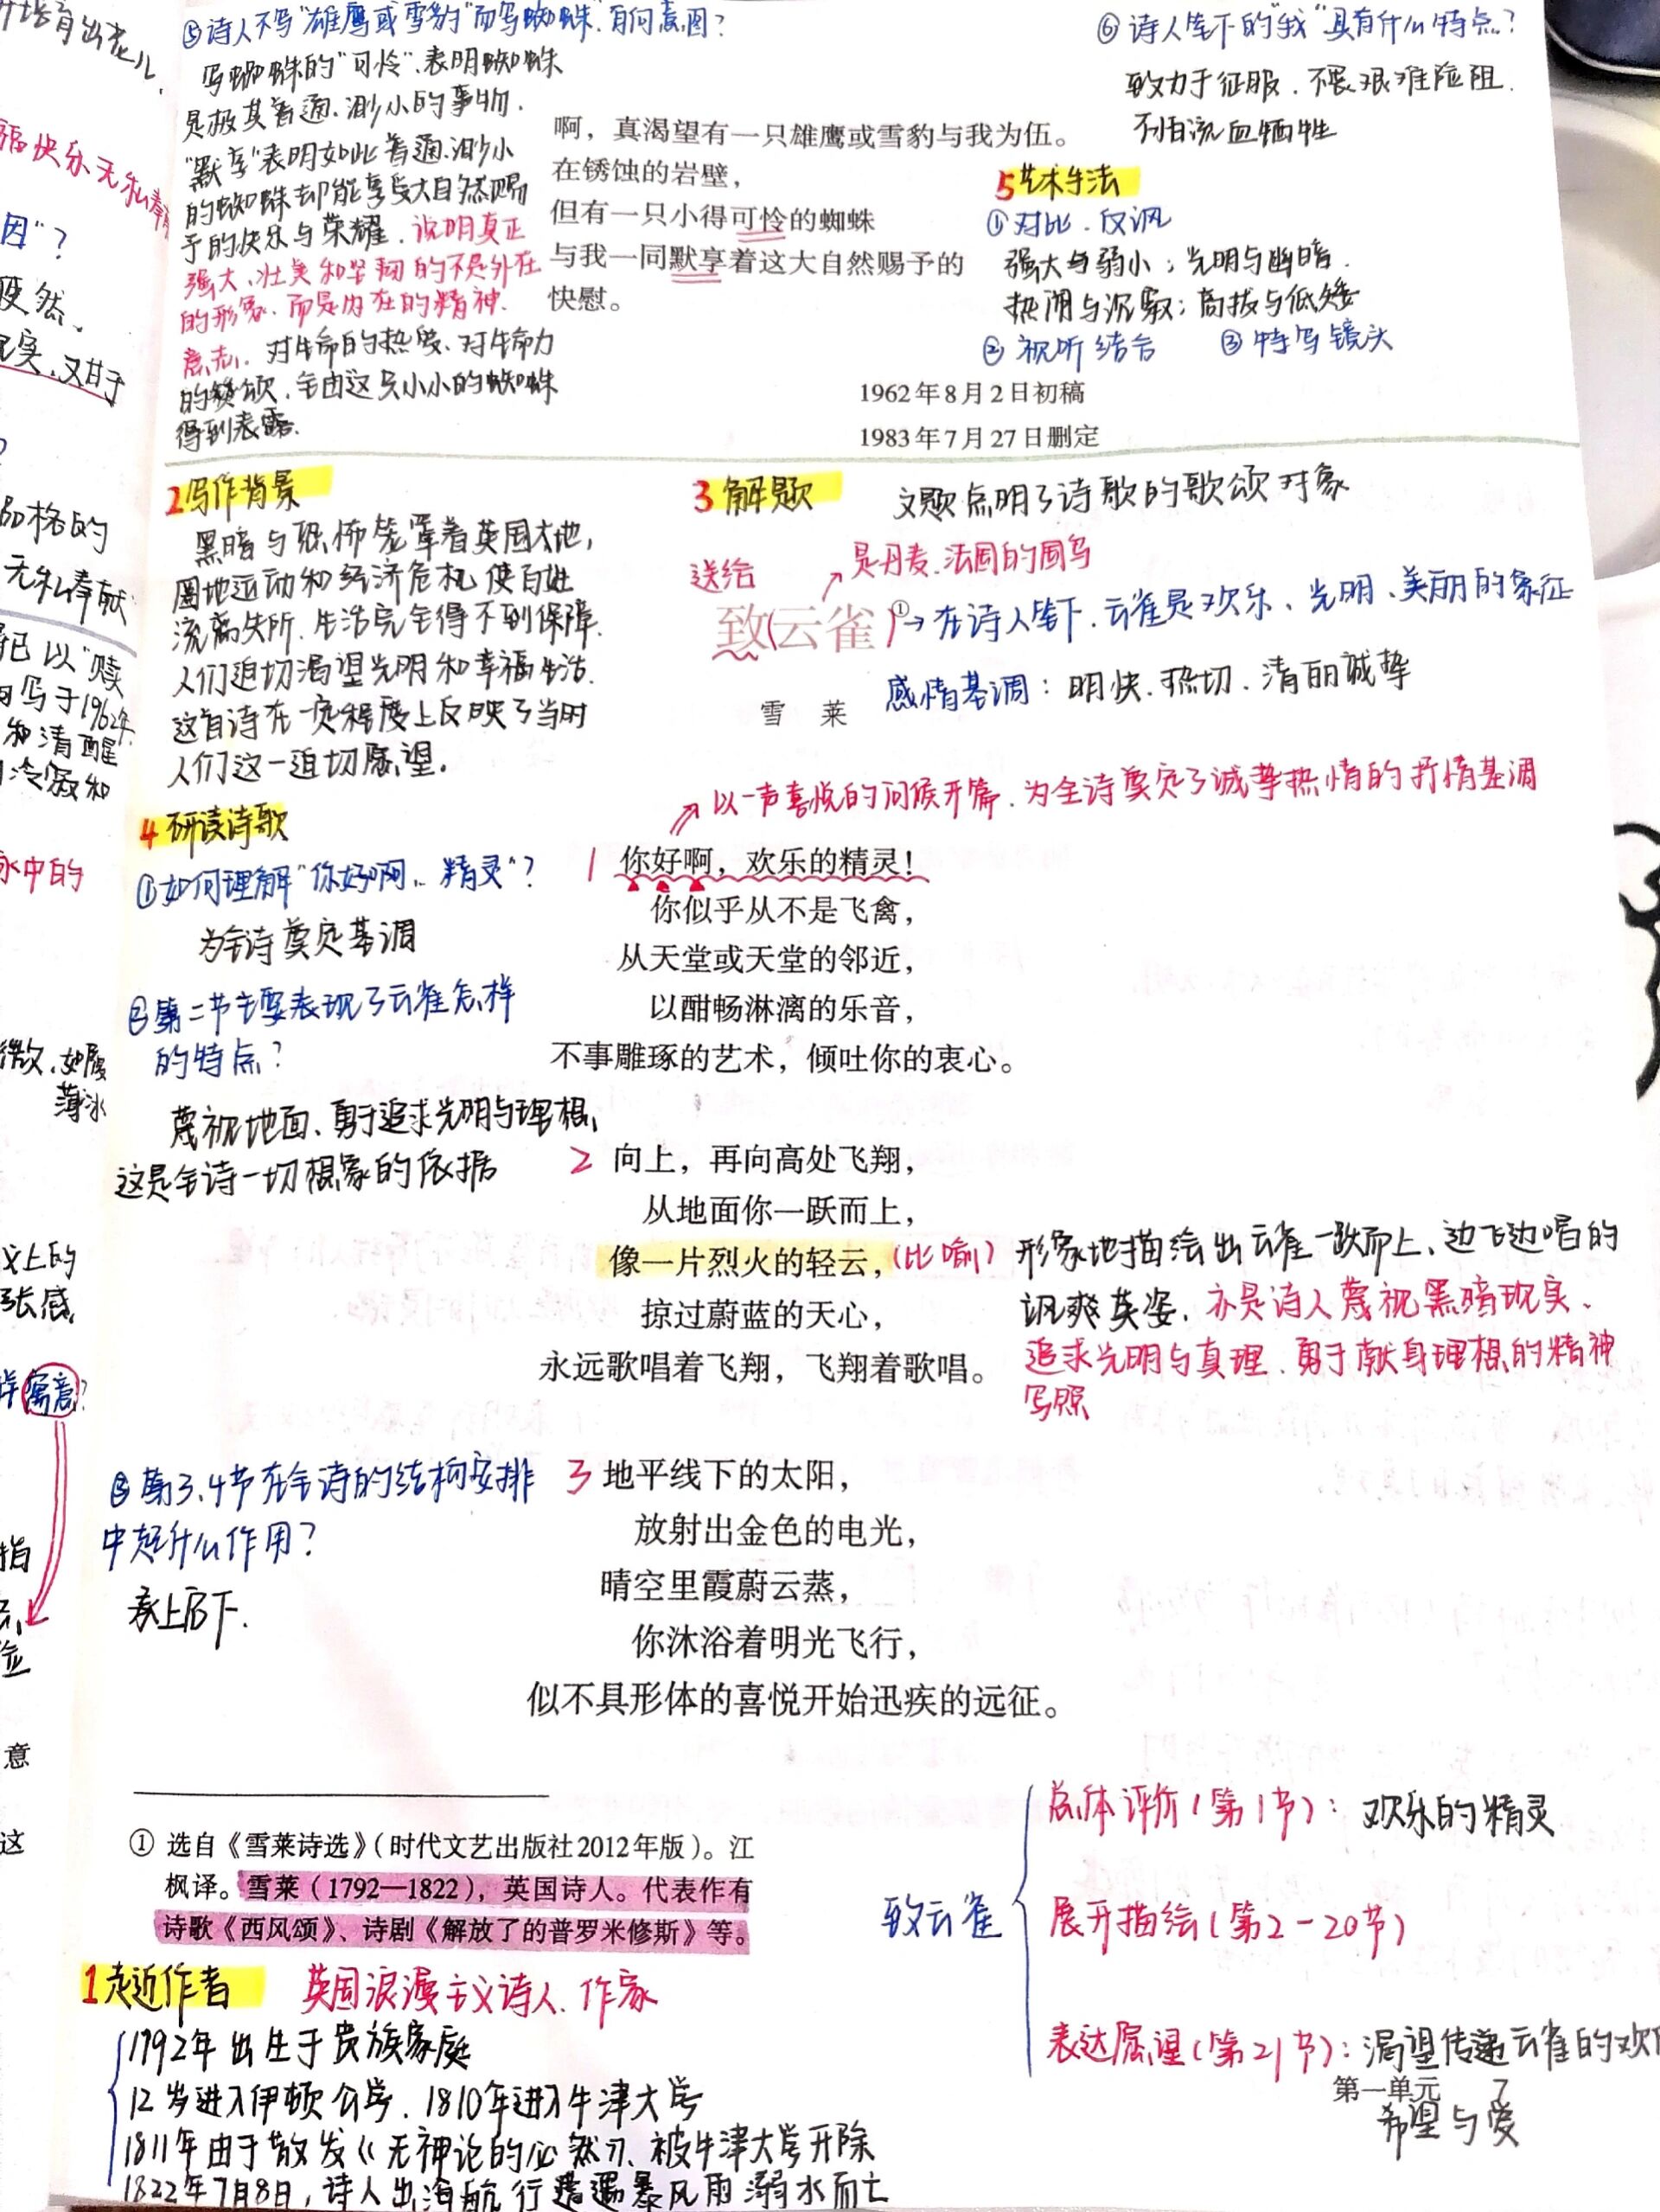 ⑤诗人不写"雄鹰或雪豹"而写蜘蛛.有何意图?
写蜘蛛的"可怜".表明蜘蛛
是极其普通.渺小的事物.
"默享"表明如此普通.渺小
的蜘蛛却能享受大自然赐
予的快乐与荣耀.说明真正
强大、壮美和坚韧的不是外在
的形象.而是内在的精神.
意志.对生命的热爱、对生命力
的赞颂.全由这只小小的蜘蛛
得到表露.
啊，真渴望有一只雄鹰或雪豹与我为伍。
在锈蚀的岩壁，
但有一只小得可怜的蜘蛛
与我一同默享着这大自然赐予的
快慰。
1962年8月2日初稿
1983年7月27日删定
⑥诗人笔下的"我"具有什么特点?
致力于征服.不畏艰难险阻.
不怕流血牺牲
5艺术手法
①对比.反讽
强大与弱小；光明与幽暗.
热闹与沉寂；高拔与低矮
②视听结合 ③特写镜头
2写作背景
黑暗与恐怖笼罩着英国大地,
圈地运动和经济危机使百姓
流离失所.生活完全得不到保障.
人们迫切渴望光明和幸福生活.
这首诗在一定程度上反映了当时
人们这一迫切愿望.
3解题 文题点明了诗歌的歌颂对象
送给
是丹麦.法国的国鸟
致(云雀)①→在诗人笔下.云雀是欢乐、光明、美丽的象征
雪 莱
感情基调：明快.热切.清丽诚挚
以一声喜悦的问候开篇.为全诗奠定了诚挚热情的抒情基调
4研读诗歌
①如何理解"你好啊..精灵"?
为全诗奠定基调
②第二节主要表现了云雀怎样
的特点?
蔑视地面、勇于追求光明与理想,
这是全诗一切想象的依据
1 你好啊，欢乐的精灵！
你似乎从不是飞禽，
从天堂或天堂的邻近，
以酣畅淋漓的乐音，
不事雕琢的艺术，倾吐你的衷心。
2 向上，再向高处飞翔，
从地面你一跃而上，
像一片烈火的轻云，(比喻)
掠过蔚蓝的天心，
永远歌唱着飞翔，飞翔着歌唱。
形象地描绘出云雀一跃而上、边飞边唱的
飒爽英姿.亦是诗人蔑视黑暗现实、
追求光明与真理.勇于献身理想的精神
写照
③第3.4节在全诗的结构安排
中起什么作用?
承上启下.
3 地平线下的太阳，
放射出金色的电光，
晴空里霞蔚云蒸，
你沐浴着明光飞行，
似不具形体的喜悦开始迅疾的远征。
① 选自《雪莱诗选》（时代文艺出版社2012年版）。江
枫译。雪莱（1792—1822），英国诗人。代表作有
诗歌《西风颂》、诗剧《解放了的普罗米修斯》等。
1走近作者 英国浪漫主义诗人.作家
1792年出生于贵族家庭
12岁进入伊顿公学.1810年进入牛津大学
1811年由于散发《无神论的必然》、被牛津大学开除
1822年7月8日,诗人出海航行遭遇暴风雨溺水而亡
致云雀
总体评价(第1节)：欢乐的精灵
展开描绘(第2-20节)
表达愿望(第21节)：渴望传递云雀的欢
第一单元 7
希望与爱
因"?
品格的
无私奉献
和清醒
微.如履
薄冰
义上的
张感
寓意?
指
意
这